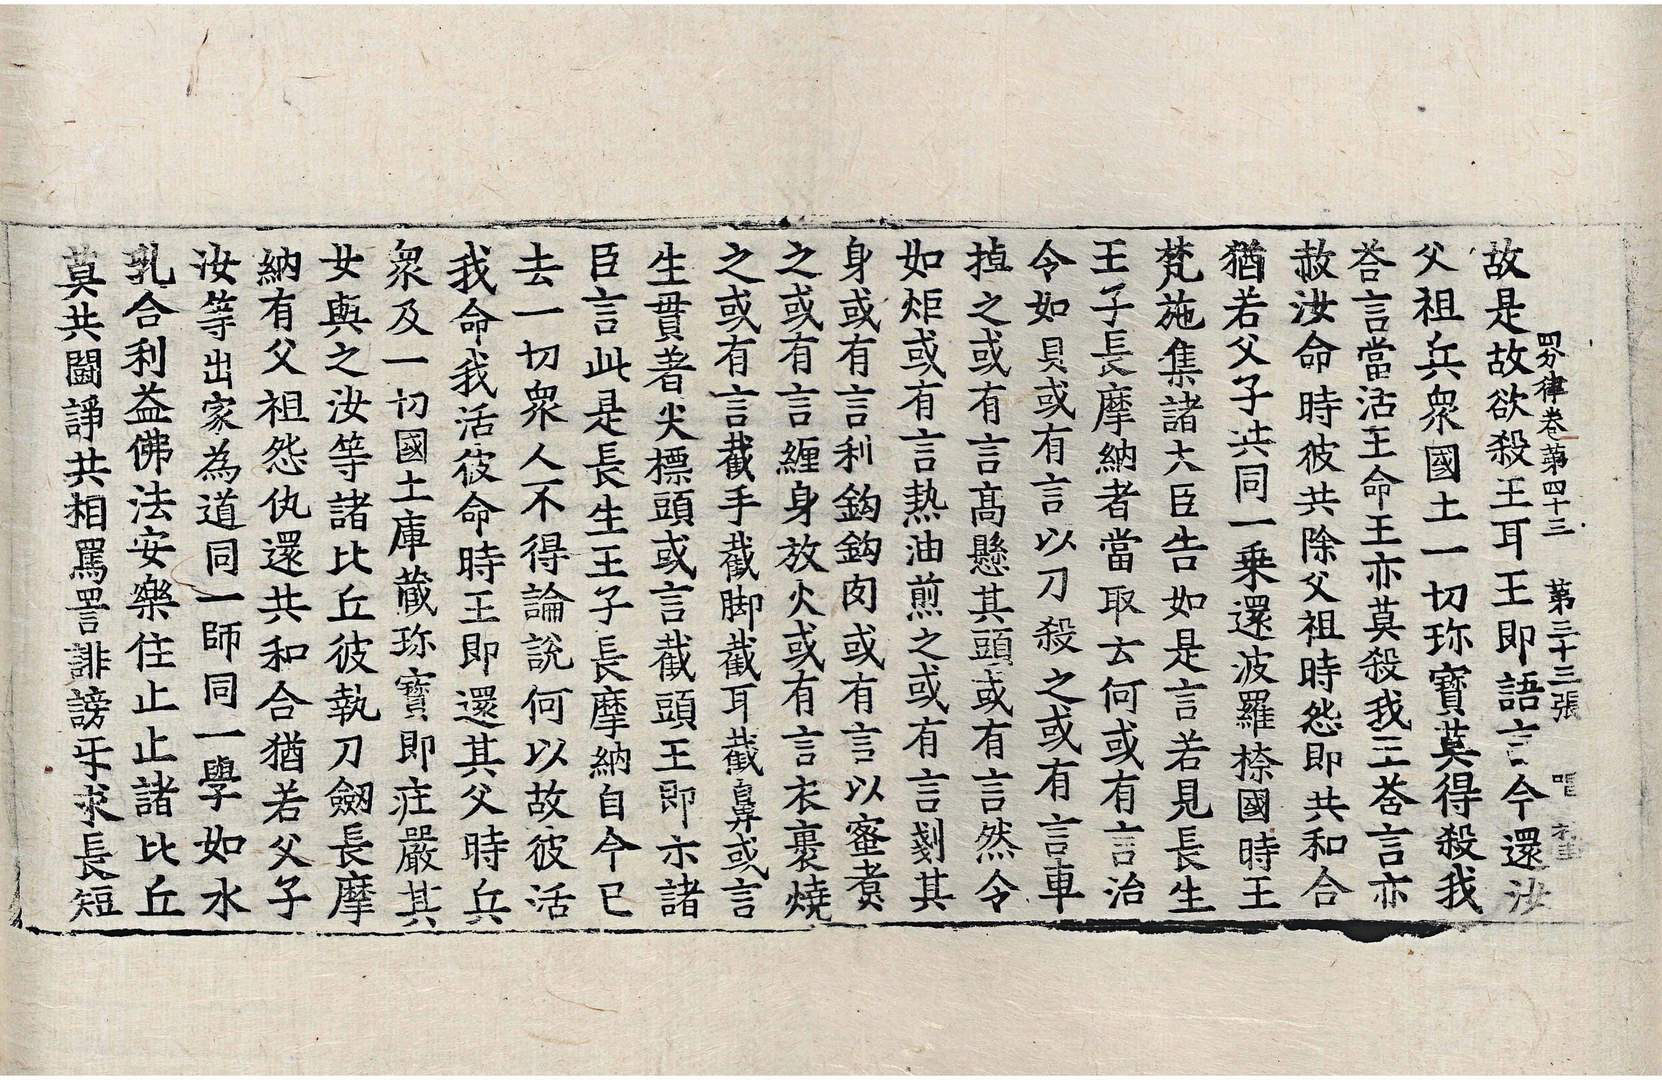 四分律卷第四十三　第三十三張
故是故欲殺王耳王即語言今還汝
父祖兵衆國土一切珎寶莫得殺我
荅言當活王命王亦莫殺我王荅言亦
赦汝命時彼共除父祖時怨即共和合
猶若父子共同一乗還波羅㮈國時王
梵施集諸大臣告如是言若見長生
王子長摩納者當取去何或有言治
令如貝或有言以刀殺之或有言車
𢷋之或有言高懸其頭或有言然令
如炬或有言熱油煎之或有言剗其
身或有言利鈎鈎肉或有言以蜜煑
之或有言纏身放火或有言衣裹燒
之或有言截手截脚截耳截鼻或言
生貫著尖標頭或言截頭王即示諸
臣言此是長生王子長摩納自今已
去一切衆人不得論説何以故彼活
我命我活彼命時王即還其父時兵
衆及一切國土庫藏珎寶即庄嚴其
女與之汝等諸比丘彼執刀劒長摩
納有父祖怨仇還共和合猶若父子
汝等出家為道同一師同一學如水
乳合利益佛法安樂住止止諸比丘
莫共鬪諍共相罵詈誹謗㸦求長短